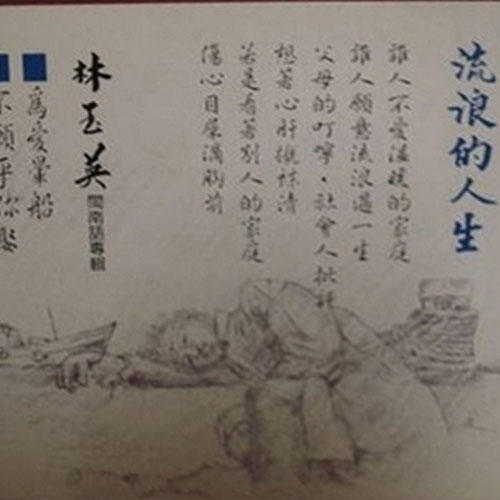 流浪的人生
誰人不愛溫暖的家庭
誰人願意流浪過一生
父母的叮嚀・社會人批評
想著心肝袂清
若是看著別人的家庭
傷心目屎滴胸前
林玉英
閩南語專輯
為愛暈船
不願乎你